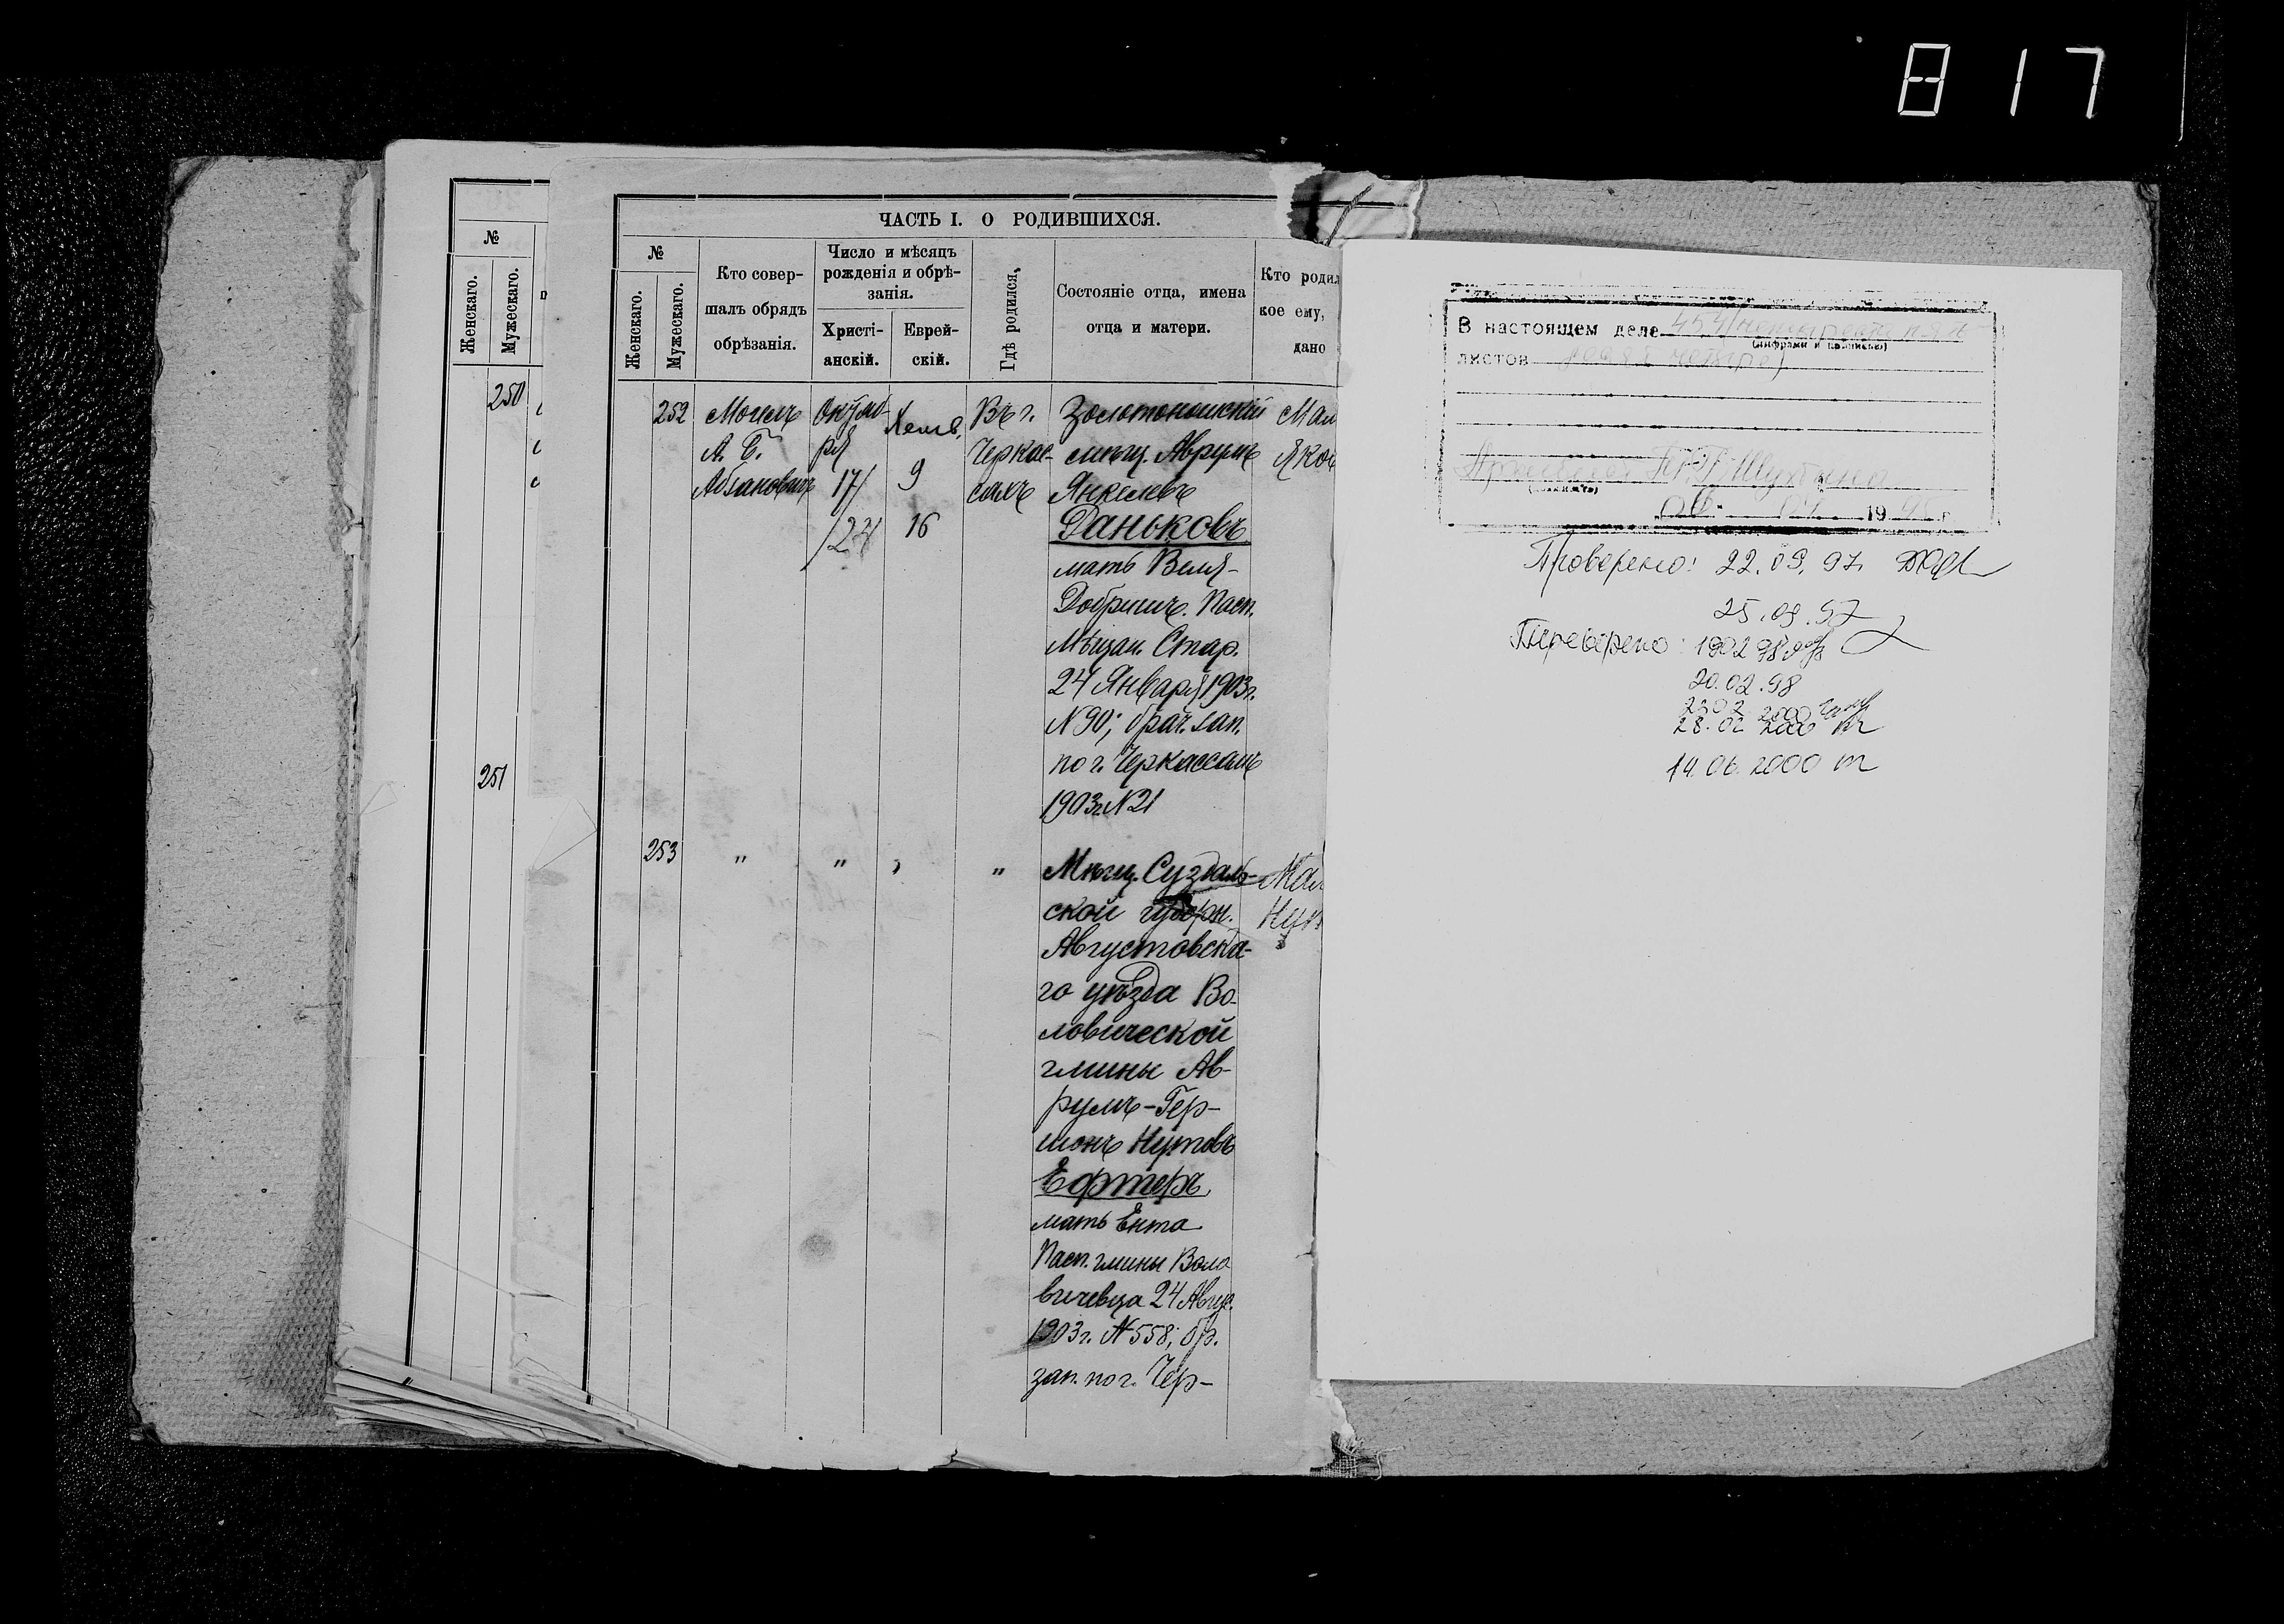 817
№
Женскаго.
Мужескаго.
250
251
ЧАСТЬ I. О РОДИВШИХСЯ.
№
Женскаго.
Мужескаго.
Кто совер-
шалъ обрядъ
обрѣзанія.
Число и мѣсяцъ
рожденія и обрѣ-
занія.
Христі-
анскій.
Еврей-
скій.
Гдѣ родился,
Состояніе отца, имена
отца и матери.
Кто родил
кое ему,
дано
252
Могелъ
А. Б.
Абзановичъ
Октяб-
ря
17/
/24
Хешв.
9
16
Въ г.
Черкас-
сахъ
Золотоношскій
мѣщ. Аврумъ
Янкелевъ
Даньковъ,
мать Веля-
Добришъ. Пасп.
Мѣщан. Стар.
24 Января 1903г.
N 90; брач. зап.
по г. Черкассамъ
1903г. N 21
Мал
Яков
253
"
"
"
"
Мѣщ. Суздаль-
ской губерн.
Августовска-
го уѣзда Во-
ловической
гмины Ав-
румъ-Гер-
шонъ Нутовъ
Ефтеръ,
мать Ента
Пасп. гмины Воло
вичевца 24 Авгус.
1903г. N 558; бр.
зап. по г. Чер-
Мал
Нут
В настоящем деле 454
(цифрами и прописью)
листов
19 г
Проверено: 22.09.97.
25.09.97
20.02.98
28.02 2000
14.06.2000